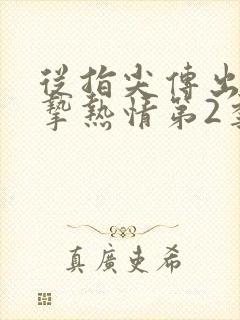 從指尖傳出
摯熱情第2
真廣吏希